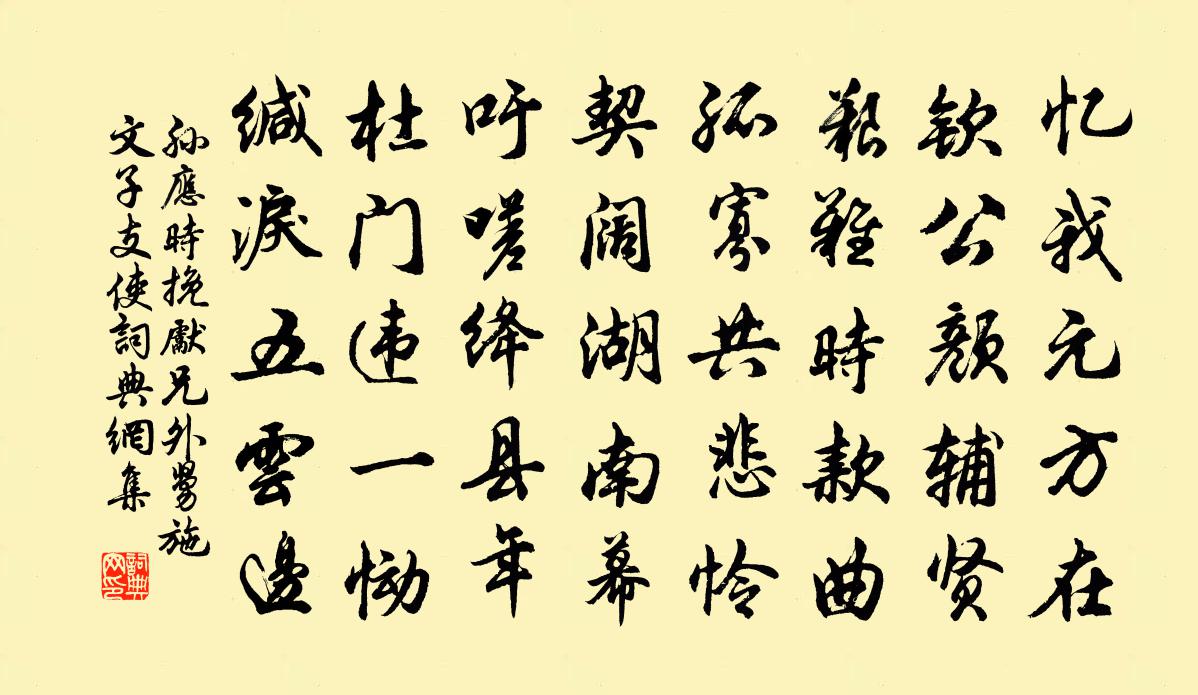 忆我元方在
钦公颜辅贤
艰難時款曲
孤寡共悲怜
契阔湖南幕
吁嗟绛县年
杜门违一恸
缄淚五雲邊
孙應時挽獻兄外舅施
文子支使詞典網集
詞典网印